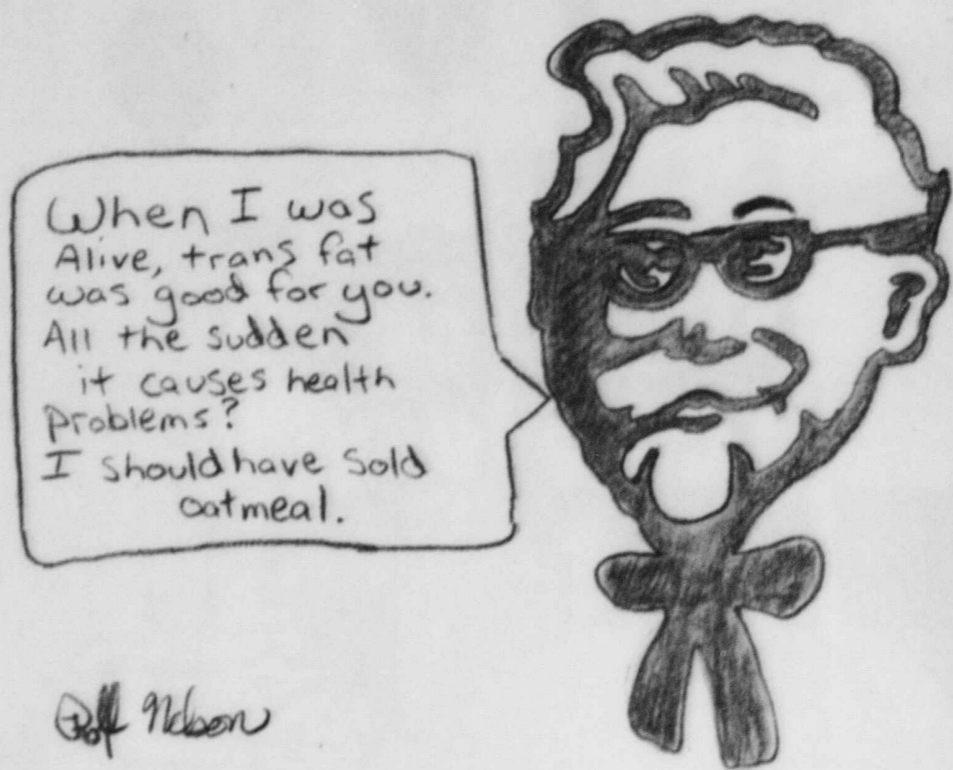 When I was
Alive, trans fat
was good for you.
All the sudden
it causes health
problems?
I should have sold
oatmeal.
Nelson